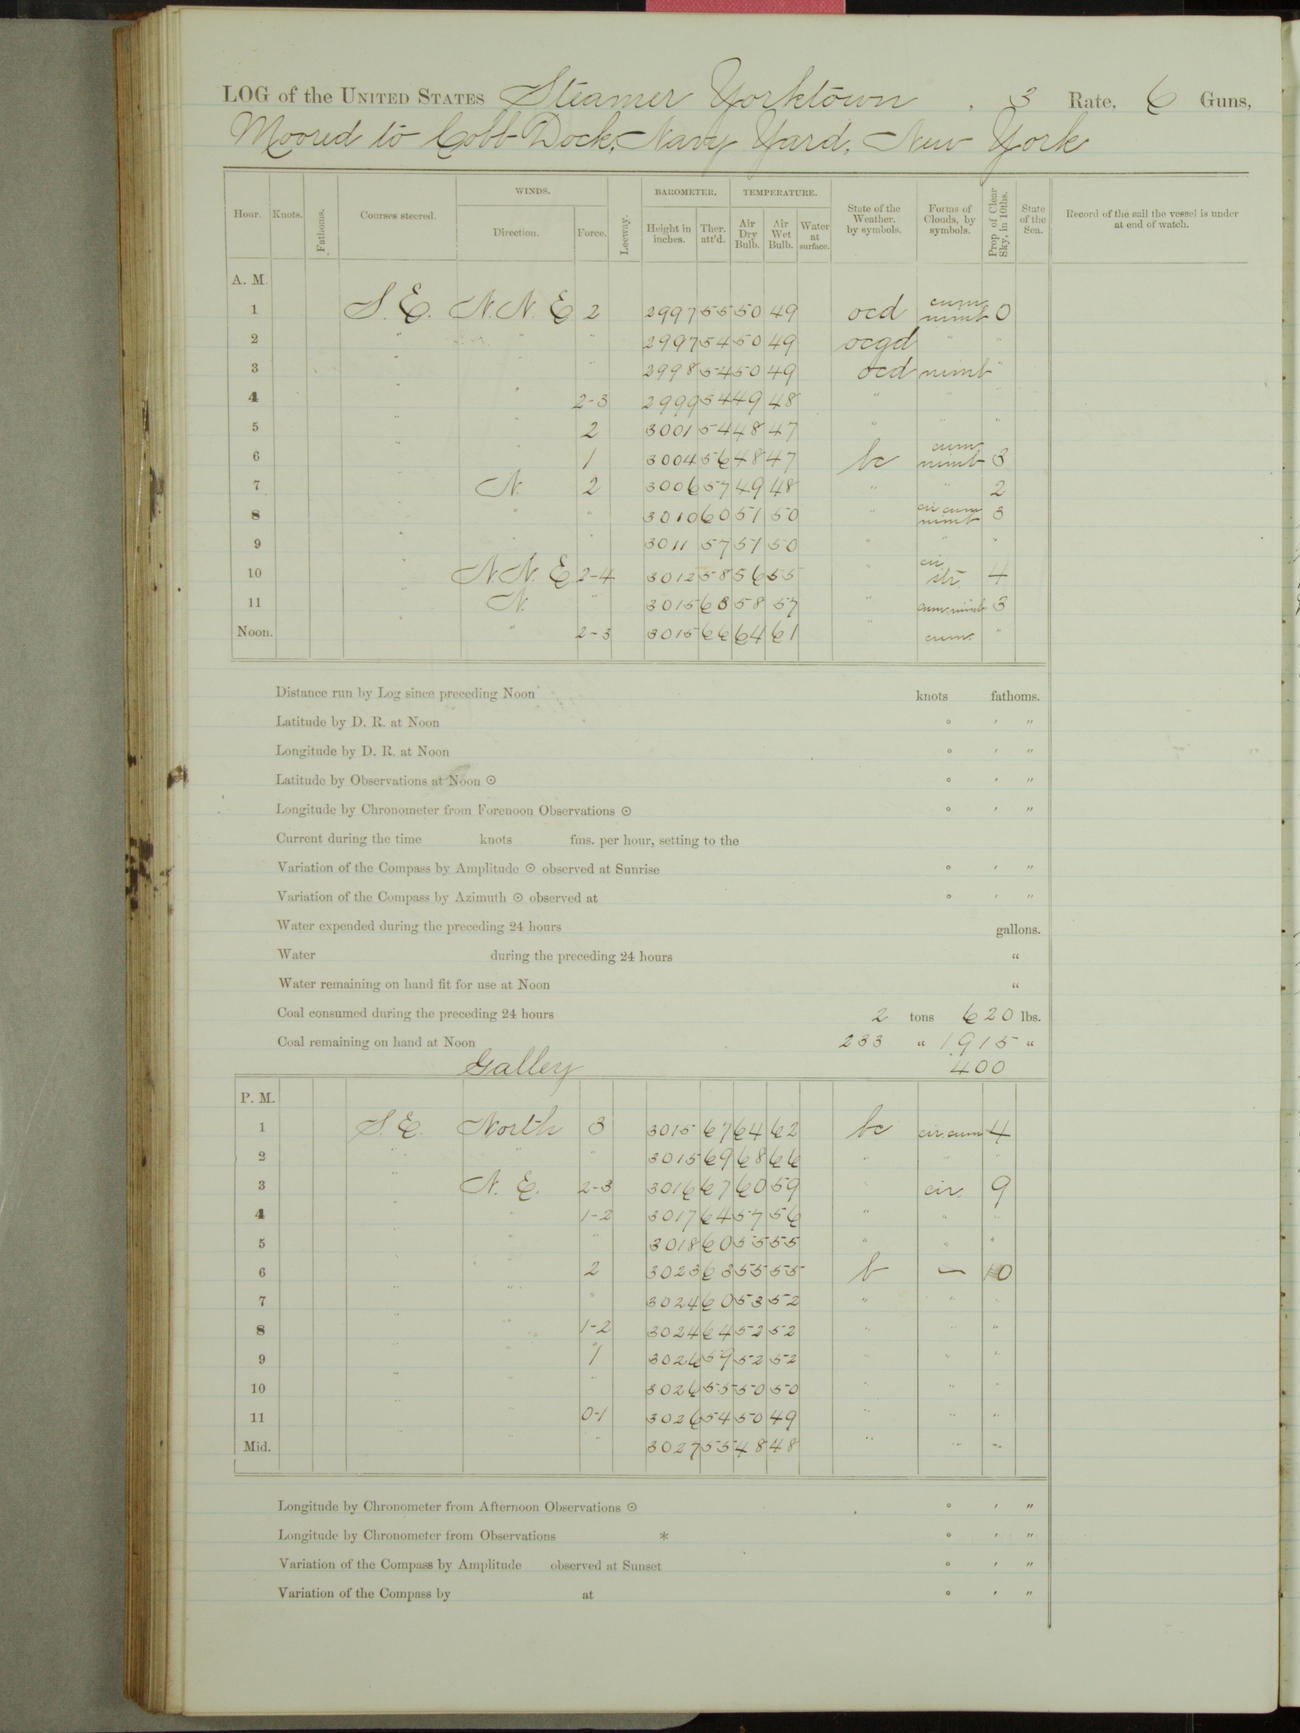 LOG of the UNITED STATES Steamer Yorktown, 3 Rate, 6 Guns,
Moored to Cobb Dock, Navy Yard, New York
Hour. Knots. Fathoms. Courses steered. WINDS. Direction. Force. Leeway. BAROMETER. Height in inches. Ther. att'd. TEMPERATURE. Air Dry Bulb. Air Wet Bulb. Water at surface. State of the Weather. by symbols. Forms of Clouds, by symbols. Prop. of Clear Sky, in 10ths. State of the Sea. Record of the sail the vessel is under at end of watch.
A. M.
1 S. E. N. N. E 2 2997 55 50 49 ocd cum nimb 0
2 " " " 2997 54 50 49 ocgd " "
3 " " " 2998 54 50 49 ocd nimb "
4 " " 2-3 2999 54 49 48 " " "
5 " " 2 3001 54 48 47 " " "
6 " " 1 3004 56 48 47 bc cum nimb 3
7 " N. 2 3006 57 49 48 " " 2
8 " " " 3010 60 51 50 " cir cum nimb 3
9 " " " 3011 57 51 50 " " "
10 " N. N. E 2-4 3012 58 56 55 " cir str 4
11 " N. " 3015 63 58 57 " cum nimb 3
Noon. " " 2-3 3015 66 64 61 " cum. "
Distance run by Log since preceding Noon knots fathoms.
Latitude by D. R. at Noon ° ′ ″
Longitude by D. R. at Noon ° ′ ″
Latitude by Observations at Noon ⊙ ° ′ ″
Longitude by Chronometer from Forenoon Observations ⊙ ° ′ ″
Current during the time knots fms. per hour, setting to the
Variation of the Compass by Amplitude ⊙ observed at Sunrise ° ′ ″
Variation of the Compass by Azimuth ⊙ observed at ° ′ ″
Water expended during the preceding 24 hours gallons.
Water during the preceding 24 hours "
Water remaining on hand fit for use at Noon "
Coal consumed during the preceding 24 hours 2 tons 620 lbs.
Coal remaining on hand at Noon 233 " 1915 "
Galley 400
P. M.
1 S. E. North 3 3015 67 64 62 bc cir. cum 4
2 " " " 3015 69 68 66 " " "
3 " N. E. 2-3 3016 67 60 59 " cir. 9
4 " " 1-2 3017 64 57 56 " " "
5 " " " 3018 60 55 55 " " "
6 " " 2 3023 63 55 55 b — 10
7 " " " 3024 60 53 52 " " "
8 " " 1-2 3024 64 52 52 " " "
9 " " 1 3026 59 52 52 " " "
10 " " " 3026 55 50 50 " " "
11 " " 0-1 3026 54 50 49 " " "
Mid. " " " 3027 55 48 48 " " "
Longitude by Chronometer from Afternoon Observations ⊙ ° ′ ″
Longitude by Chronometer from Observations * ° ′ ″
Variation of the Compass by Amplitude observed at Sunset ° ′ ″
Variation of the Compass by at ° ′ ″